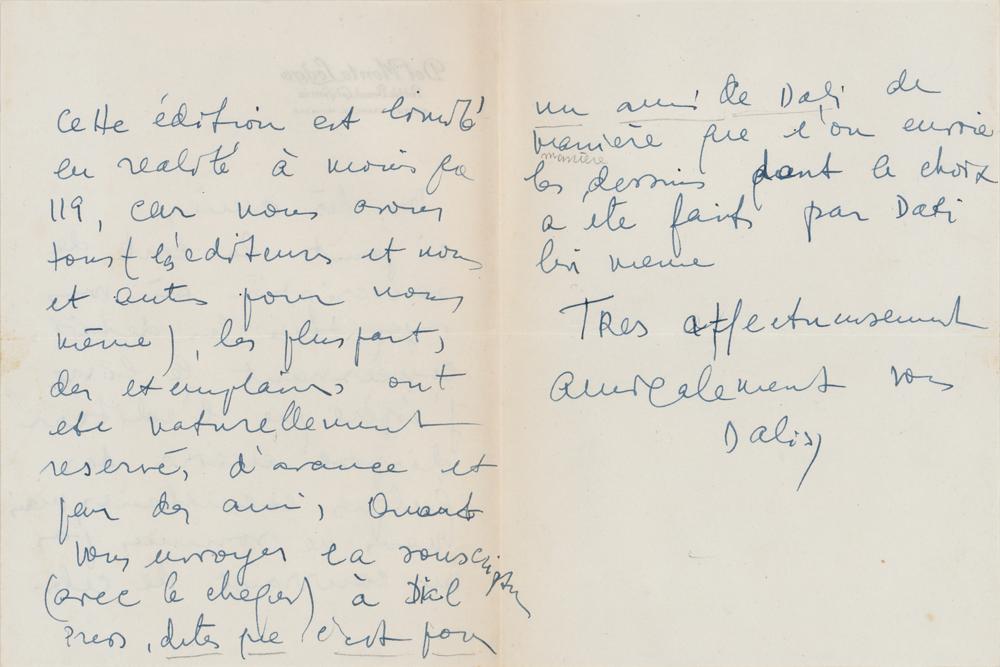 cette édition est limité
en realité à moins que
119, car nous avons
tous (les editeurs et nous
et autes pour nous
même), les plus part,
des exemplaires ont
ete naturellement
reservé, d'avance et
par des ami, Quant
vous envoyer la souscription
(avec le cheque) à Dial
Press, dites que c'est pour
un ami de Dali de
maniere que l'on envoie
manière
les dessins dont le choix
a ete faits par Dali
lui meme
Tres affectueusement
amicalement vos
Dalis